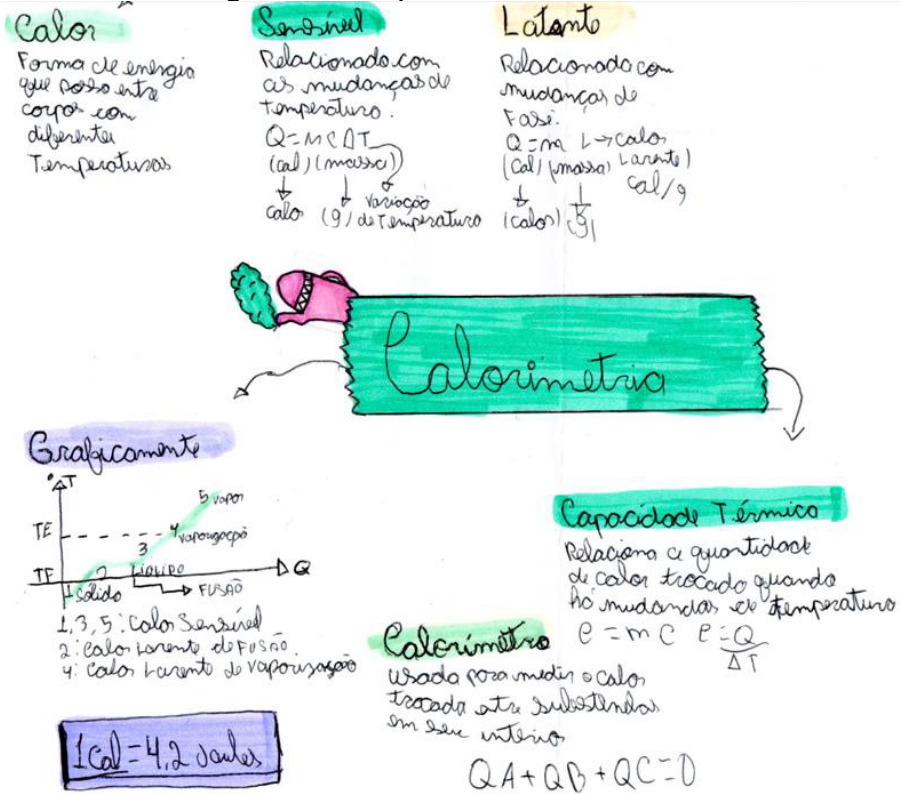 Calor
Forma de energia
que passa entre
corpos com
diferentes
Temperaturas
Sensível
Relacionado com
as mudanças de
temperatura.
Q=mCΔT
(cal) (massa)
calor (g) variação
de Temperatura
Latente
Relacionada com
mudanças de
Fase.
Q=m L→calor
(Cal) (massa) Latente)
cal/g
(calor) (g)
Calorimetria
Graficamente
°T
5 vapor
TE
4 vaporização
3
TF
2
LíQUIDO
Q
1 Sólido
FUSÃO
1,3,5: Calor Sensível
2: Calor Latente de FUSÃO.
4: Calor Latente de Vaporização
1Cal=4,2 Joules
Capacidade Térmica
Relaciona a quantidade
de calor trocado quando
há mudandas de temperatura
C=mC C=Q
ΔT
Calorímetro
usada para medir o calor
trocada entre substâncias
em seu interior
QA+QB+QC=0